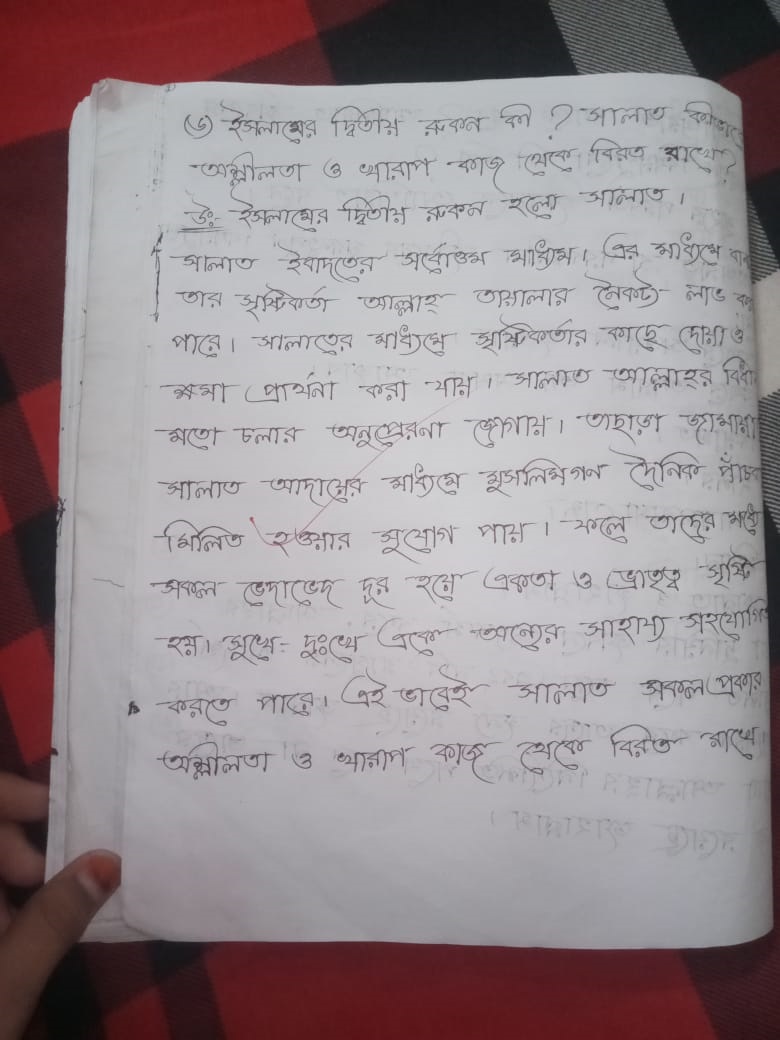 (৬) ইসলামের দ্বিতীয় রুকন কী ? সালাত কীভাবে
অশ্লীলতা ও খারাপ কাজ থেকে বিরত রাখে?
উঃ- ইসলামের দ্বিতীয় রুকন হলো সালাত ।
সালাত ইবাদতের সর্বোত্তম মাধ্যম। এর মাধ্যমে
তার সৃষ্টিকর্তা আল্লাহ্ তায়ালার নৈকট্য লাভ
পারে। সালাতের মাধ্যমে সৃষ্টিকর্তার কাছে দোয়া ও
ক্ষমা প্রার্থনা করা যায় । সালাত আল্লাহর
মতো চলার অনুপ্রেরনা জোগায়। তাছাড়া
সালাত আদায়ের মাধ্যমে মুসলিমগন দৈনিক
মিলিত হওয়ার সুযোগ পায় । ফলে তাদের মধ্যে
সকল ভেদাভেদ দূর হয়ে একতা ও ভ্রাতৃত্ব সৃষ্টি
হয়। সুখে- দুঃখে একে অন্যের সাহায্য
করতে পারে। এই ভাবেই সালাত সকল প্রকার
অশ্লীলতা ও খারাপ কাজ থেকে বিরত রাখে